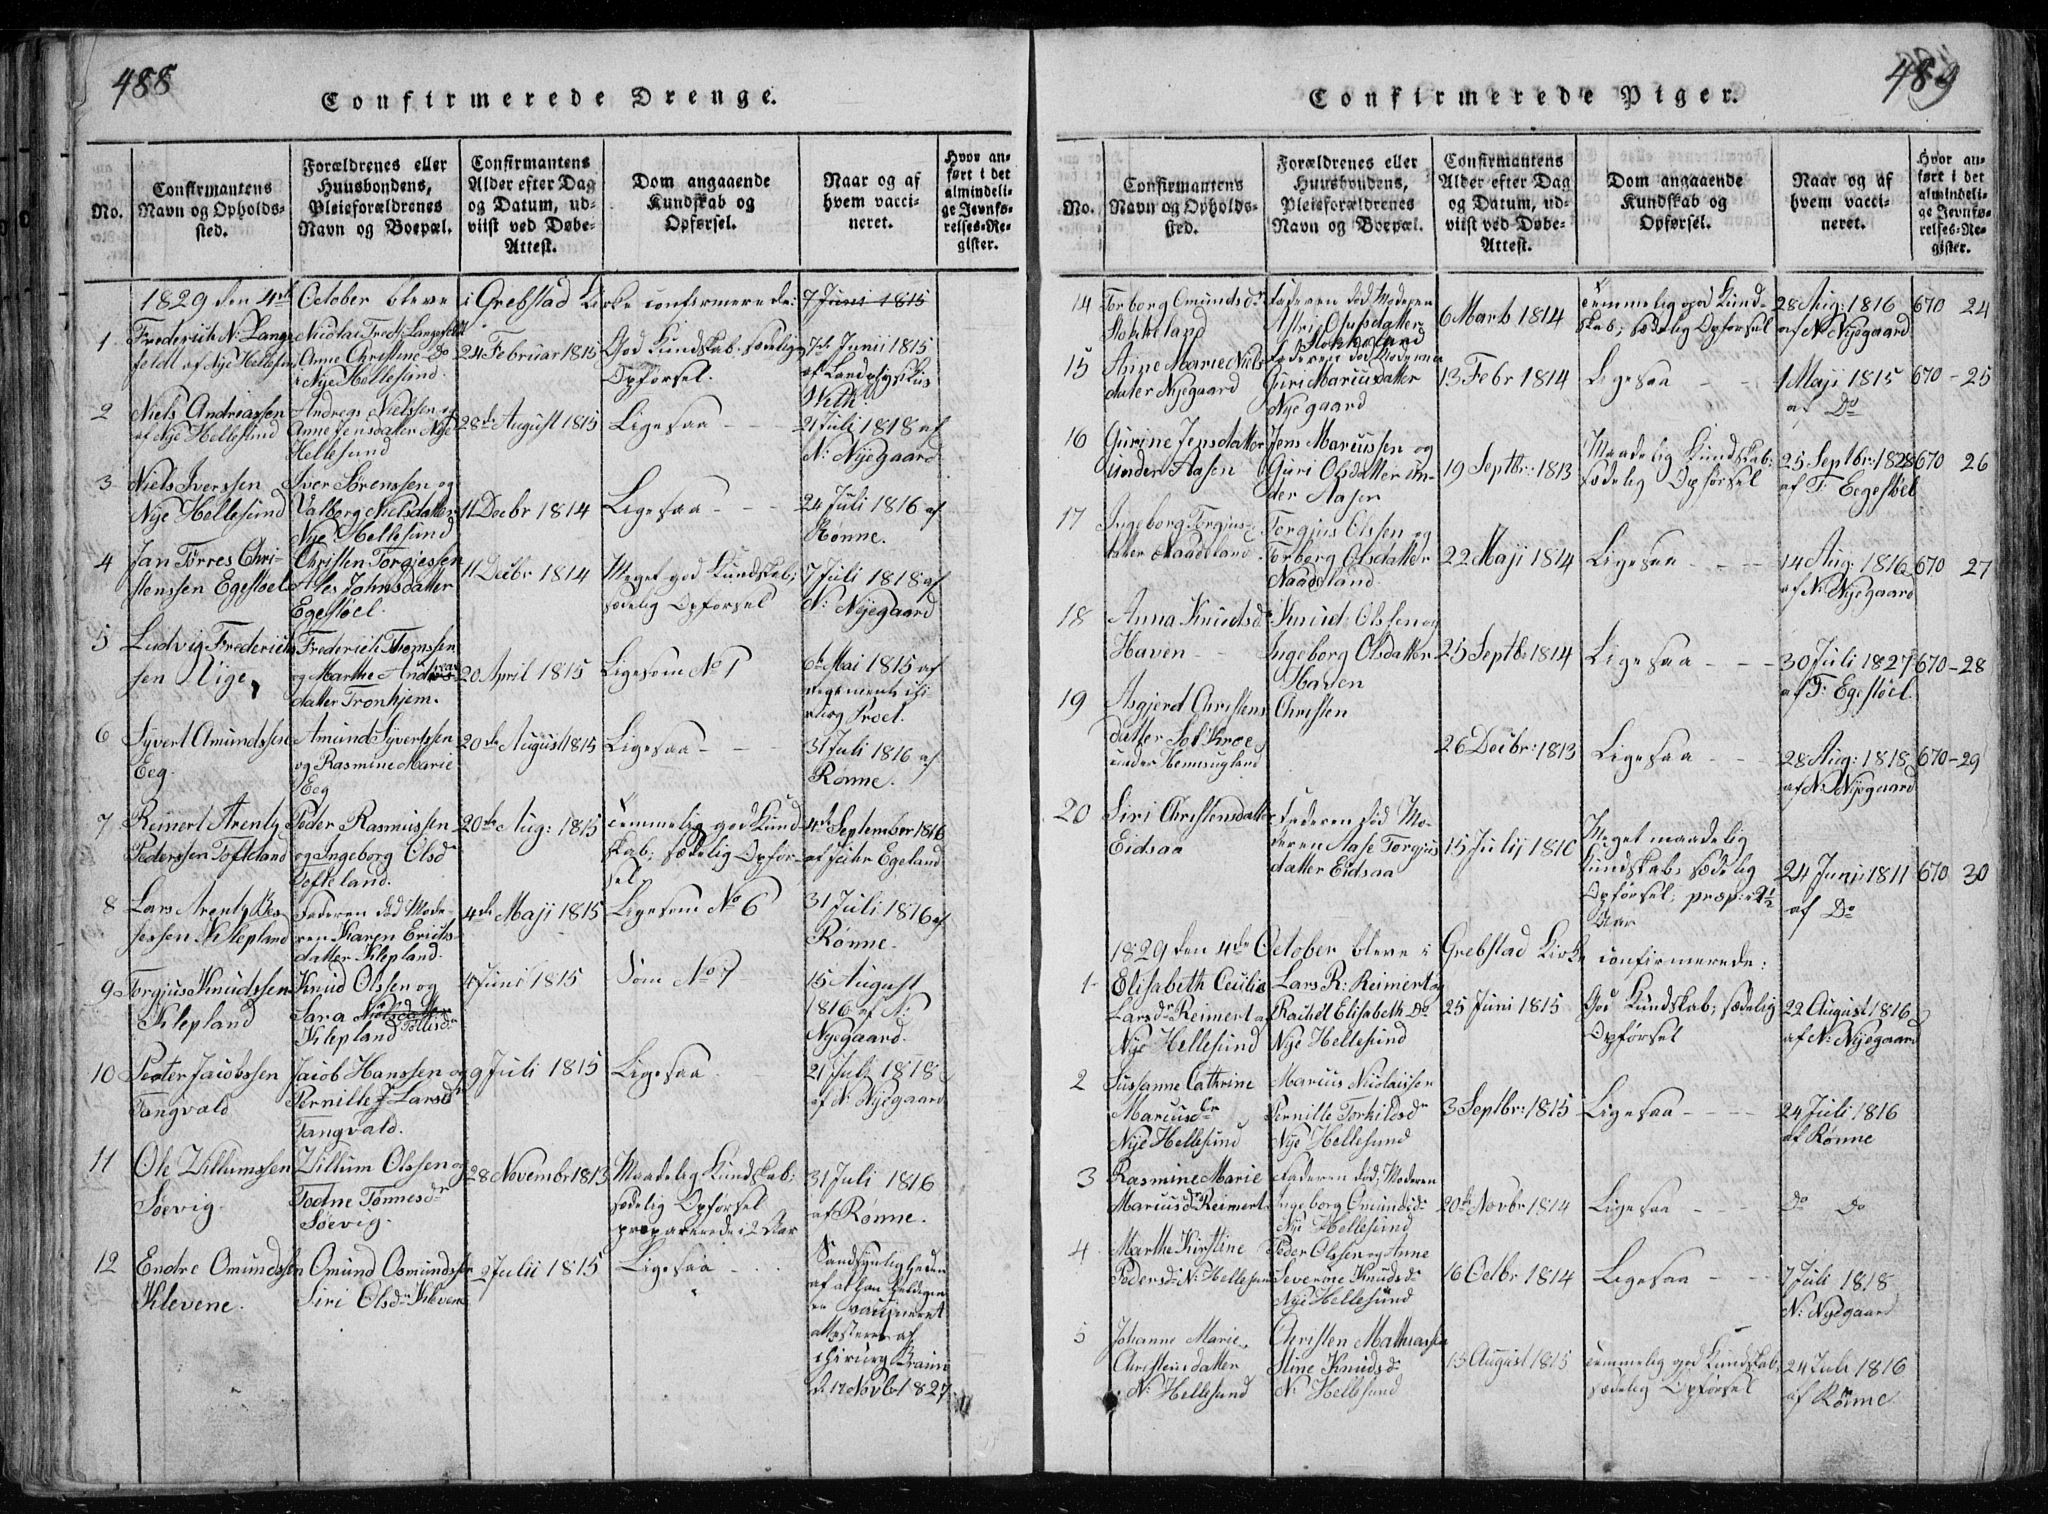 488
Confirmerede Drenge.
No.
Confirmantens
Navn og Opholds-
sted.
Forældrenes eller
Huusbondens,
Pleieforældrenes
Navn og Boepæl.
Confirmantens
Alder efter Dag
og Datum, ud-
viist ved Døbe-
Attest.
Dom angaaende
Kundskab og
Opførsel.
Naar og af
hvem vacci-
neret.
Hvor an-
ført i det
almindeli-
ge Jevnfø-
relses-Re-
gister.
1829 den 4de October bleve i Grebstad Kirke confirmerede:
7 Juni 1815
1
Frederich N: Lange
feldt af Nye Hellesund
Nicolai Fred: Langefeldt
Anne Christine Do
Nye Hellesund.
24 Februar 1815
God Kundskab. sædelig
Opførsel.
7de Junii 1815
af Landphysikus
Weth.
2
Niels Andreassen
af Nye Hellesund
Andreas Nielssen og
Anne Jensdatter Nye
Hellesund
28de August 1815
Ligesaa
21 Juli 1818 af
N: Nyegaard
3
Niels Iverssen
Nye Hellesund
Iver Sørenssen og
Valborg Nielsdatter
Nye Hellesund
11 Decbr 1814
Ligesaa
24 Juli 1816 af
Rønne.
4
Jan Tørres Chri-
stenssen Egestøel
Christen Torgiessen
Ales Johnsdatter
Egestøel.
11 Decbr 1814
Meget god Kundskab;
sædelig Opførsel
7 Juli 1818 af
N: Nyegaard
5
Ludvig Frederich
sen Uige
Frederich Thomssen
og Marthe Andreas
datter Tronhjem.
20 April 1815
Ligesom No 1
6te Mai 1815 af
regiments chi
rurg Proet.
6
Syvert Omundssen
Eeg.
Amund Syvertssen
og Rasmine Marie
Eeg
20de August 1815
Ligesaa
31 Juli 1816 af
Rønne.
7
Reinert Arentz
Pederssen Tofteland
Peder Rasmussen
og Ingeborg Olsdr
Tofteland.
20de Aug: 1815
Temmelig god Kund
skab; sædelig Opfør-
sel
4de September 1816
af Peiter Egeland
8
Lars Arentz Bes
sessen Klepland
Faderen død Mode-
ren Karen Erichs
datter Klepland.
4de Maji 1815
Ligesom No 6
31 Juli 1816 af
Rønne.
9
Torgius Knudssen
Klepland
Knud Olssen og
Sara Nielsdatter
Tollisdr
Klepland
4 Juni 1815
Som No 7
15 August
1816 af N:
Nyegaard.
10
Peter Jacobssen
Tangvald
Jacob Hanssen og
Pernille J. Larsdr
Tangvald.
9 Juli 1815
Ligesaa
21 Juli 1818
af N: Nyegaard
11
Ole Villumssen
Søevig.
Villum Olssen og
Todne Tønnesdr
Søevig.
28 November 1813
Maadelig Kundskab;
sædelig Opførsel
præparerede i 2 Aar
31 Juli 1816
af Rønne.
12
Endre Omundssen
Klevene.
Omund Osmundssen
Siri Olsdr Klevene
2 Julii 1815
Ligesaa
Sandsynligheden
af at han heldigen
er vaccineret
attesteres af
chirurg Braun
d. 17 Novbr 1827
489
Confirmerede Piger.
No.
Confirmantens
Navn og Opholds-
sted.
Forældrenes eller
Huusbondens,
Pleieforældrenes
Navn og Boepæl.
Confirmantens
Alder efter Dag
og Datum, ud-
viist ved Døbe-
Attest.
Dom angaaende
Kundskab og
Opførsel.
Naar og af
hvem vacci-
neret.
Hvor an-
ført i det
almindeli-
ge Jevnfø-
relses-Re-
gister.
14
Torborg Omundsdr
Stokkeland
Faderen død Moderen
Assri Olufsdatter
Stokkeland
6 Marts 1814
Temmelig god Kund-
skab; sædelig Opførsel
28 Aug: 1816
af N: Nyegaard
670 24
15
Anne Marie Niels
datter Nyegaard
Faderen død Moderen
Guri Mariusdatter
Nyegaard
13 Febr 1814
Ligesaa
1 Maji 1815
af Do
670 - 25
16
Gurine Jensdatter
under Aasen
Jens Marcussen og
Guri Olsdatter un-
der Aasen
19 Septbr: 1813
Maadelig Kundskab;
sædelig Opførsel
25 Septbr: 1828
af T: Eegestøel
670 26
17
Ingeborg Torgius-
datter Naadeland
Torgius Olssen og
Torberg Olsdatter
Naadeland
22 Maji 1814
Ligesaa
14 Aug: 1816
af N: Nyegaard
670 27
18
Anna Knudsdr
Haven
Knud Olssen og
Ingeborg Olsdatter
Haven
25 Septbr: 1814
Ligesaa
30 Juli 1827
af T: Egestøel.
670 - 28
19
Asgjerd Christens
datter Solkroe
under Hemmingland
Christen
26 Decbr: 1813
Ligesaa
28 Aug: 1818
af N: Nyegaard
670 - 29
20
Siri Christensdatter
Eidsaa
Faderen død Mo-
deren Aase Torgius
datter Eidsaa
15 Julij 1810
Meget maadelig
Kundskab, sædelig
Opførsel; præp: i 2 1/2
Aar
24 Juni 1811
af Do
670 30
1829 den 4de October bleve i Grebstad Kirke confirmerede:
1
Elisabeth Cecilia
Larsdr Reimert a
Nye Hellesund
Lars R: Reimert og
Rachel Elisabeth Do
Nye Hellesund
25 Juni 1815
God Kundskab; sædelig
Opførsel
22 August 1816
af N: Nyegaard
2
Sussanne Cathrine
Marcusdr
Nye Hellesund
Marcus Nicolaisen
Pernille Torkildsdr
Nye Hellesund
3 Septbr: 1815
Ligesaa
24 Juli 1816
af Rønne
3
Rasmine Marie
Marcusdr Reimert
Faderen død; Moderen
Ingeborg Omundsdr
Nye Hellesund
20de Novbr 1814
Ligesaa
Do Do
4
Marthe Kirstine
Pedersdr N: Hellesund
Peder Olssen og Anne
Severine Knudsdr
Nye Hellesund
16 Octbr 1814
Ligesaa
7 Juli 1818
N: Nyegaard
5
Johanne Marie
Christensdatter
N: Hellesund
Christen Mathiassen
Stine Knudsdr
N: Hellesund
13 August 1815
Temmelig god Kundskab;
sædelig Opførsel
24 Juli 1816
af Rønne